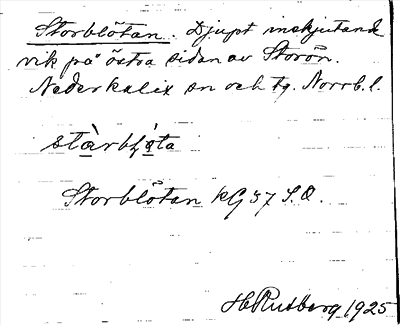 Storblötan. Djupt inskjutande
vik på östra sidan av Storön.
Nederkalix sn och tg. Norrb. l.
Storblötan kG 57 S.O.
H Rutberg 1925